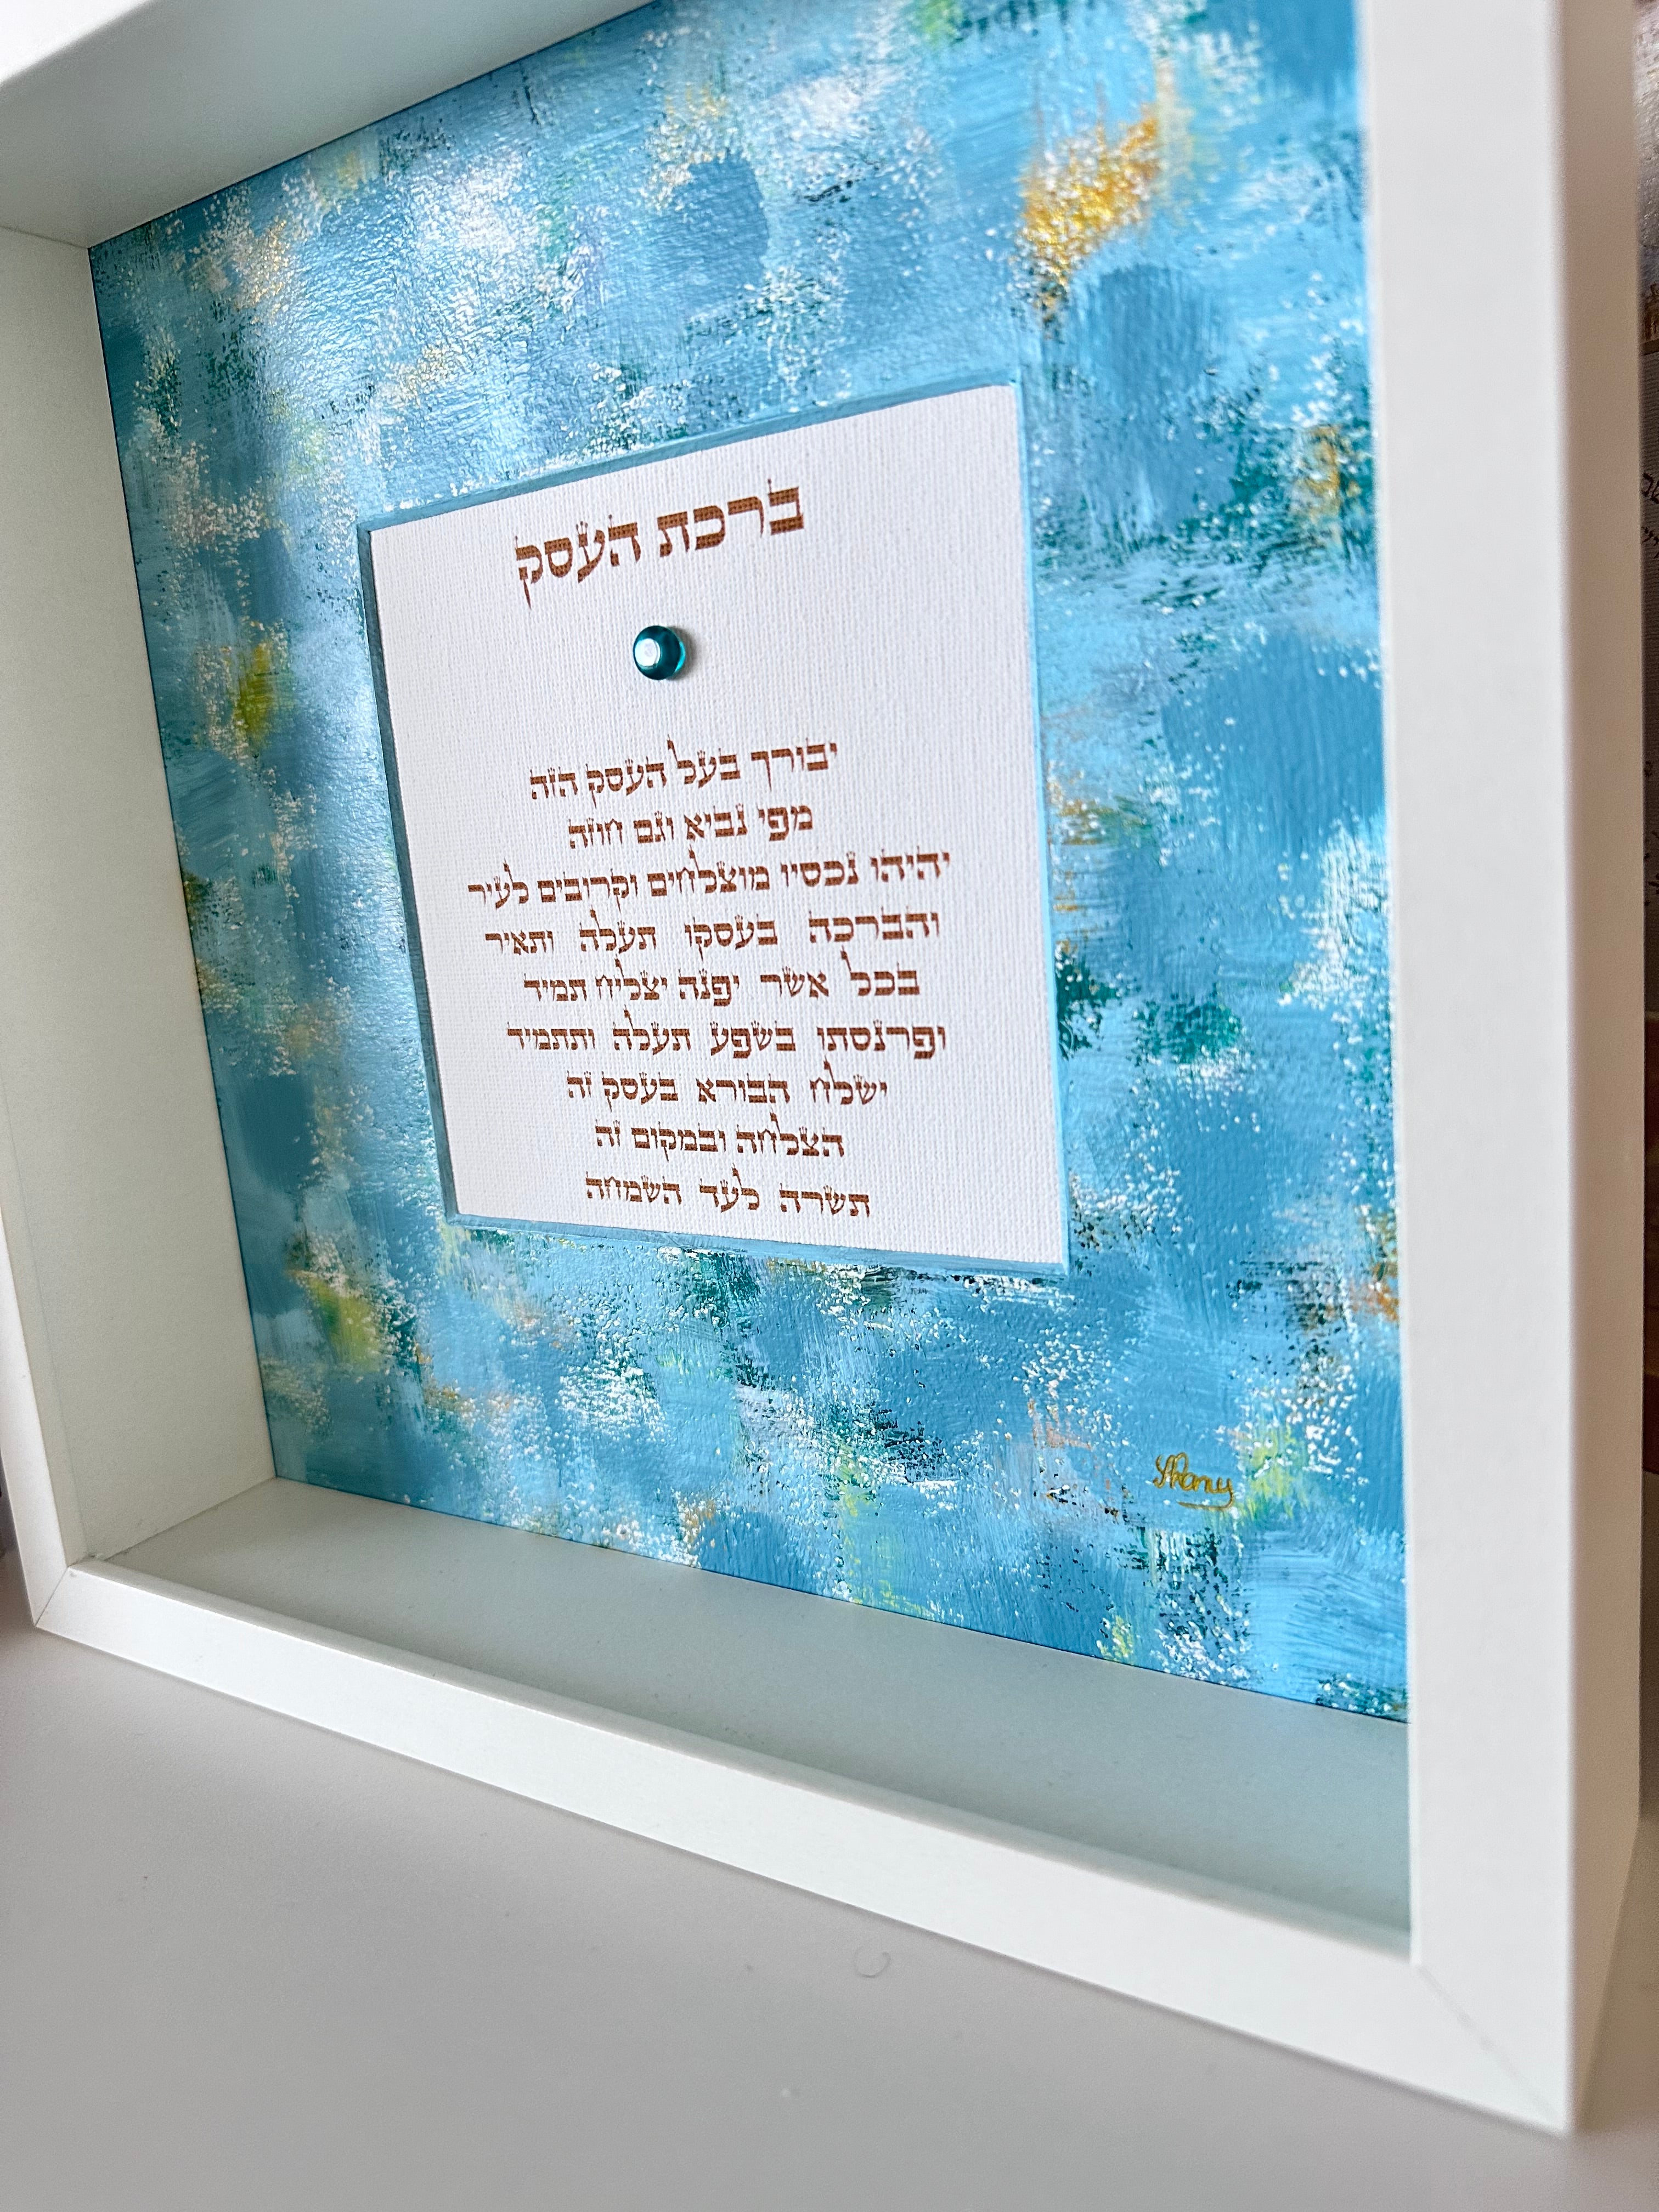 ברכת העסק
יבורך בעל העסק הזה
מפי נביא וגם חוזה
יהיהו נכסיו מוצלחים וקרובים לעיר
והברכה בעסקו תעלה ותאיר
בכל אשר יפנה יצליח תמיד
ופרנסתו בשפע תעלה ותתמיד
ישלח הבורא בעסק זה
הצלחה ובמקום זה
תשרה לעד השמחה